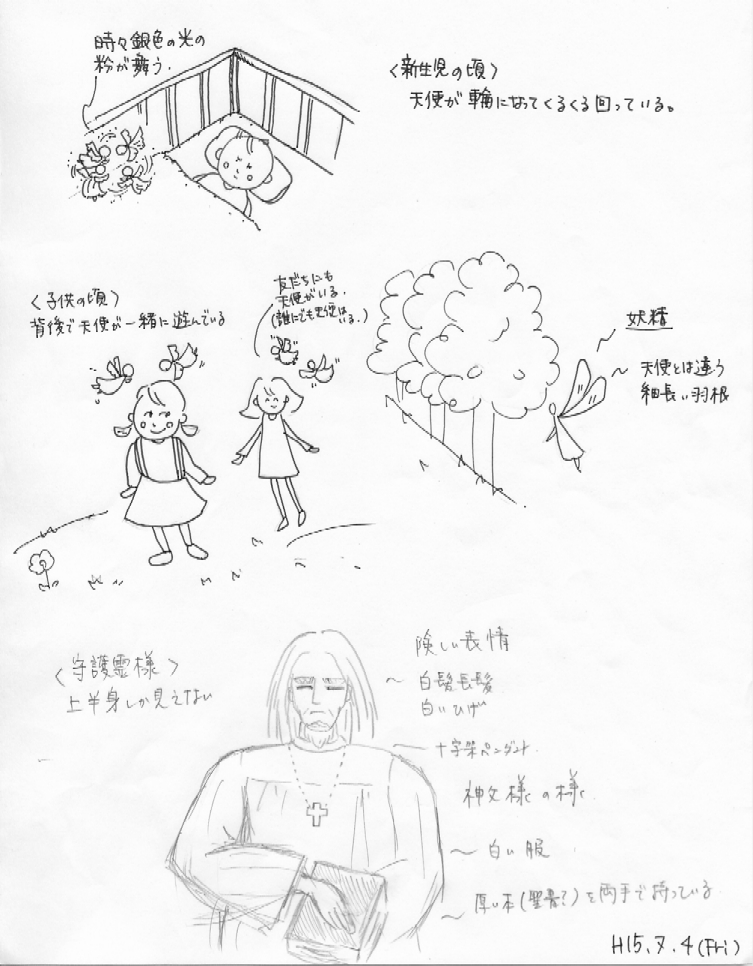 時々銀色の光の
粉が舞う.
〈新生児の頃〉
天使が輪になってくるくる回っている。
〈子供の頃〉
背後で天使が一緒に遊んでいる
友だちにも
天使がいる.
(誰にでも天使は
いる.)
妖精
〜 天使とは違う
細長い羽根
〈守護霊様〉
上半身しか見えない
険しい表情
〜 白髪長髪
白いひげ
十字架ペンダント
神父様の様
〜 白い服
〜 厚い本(聖書?)を両手で持っている
H15.7.4(Fri)